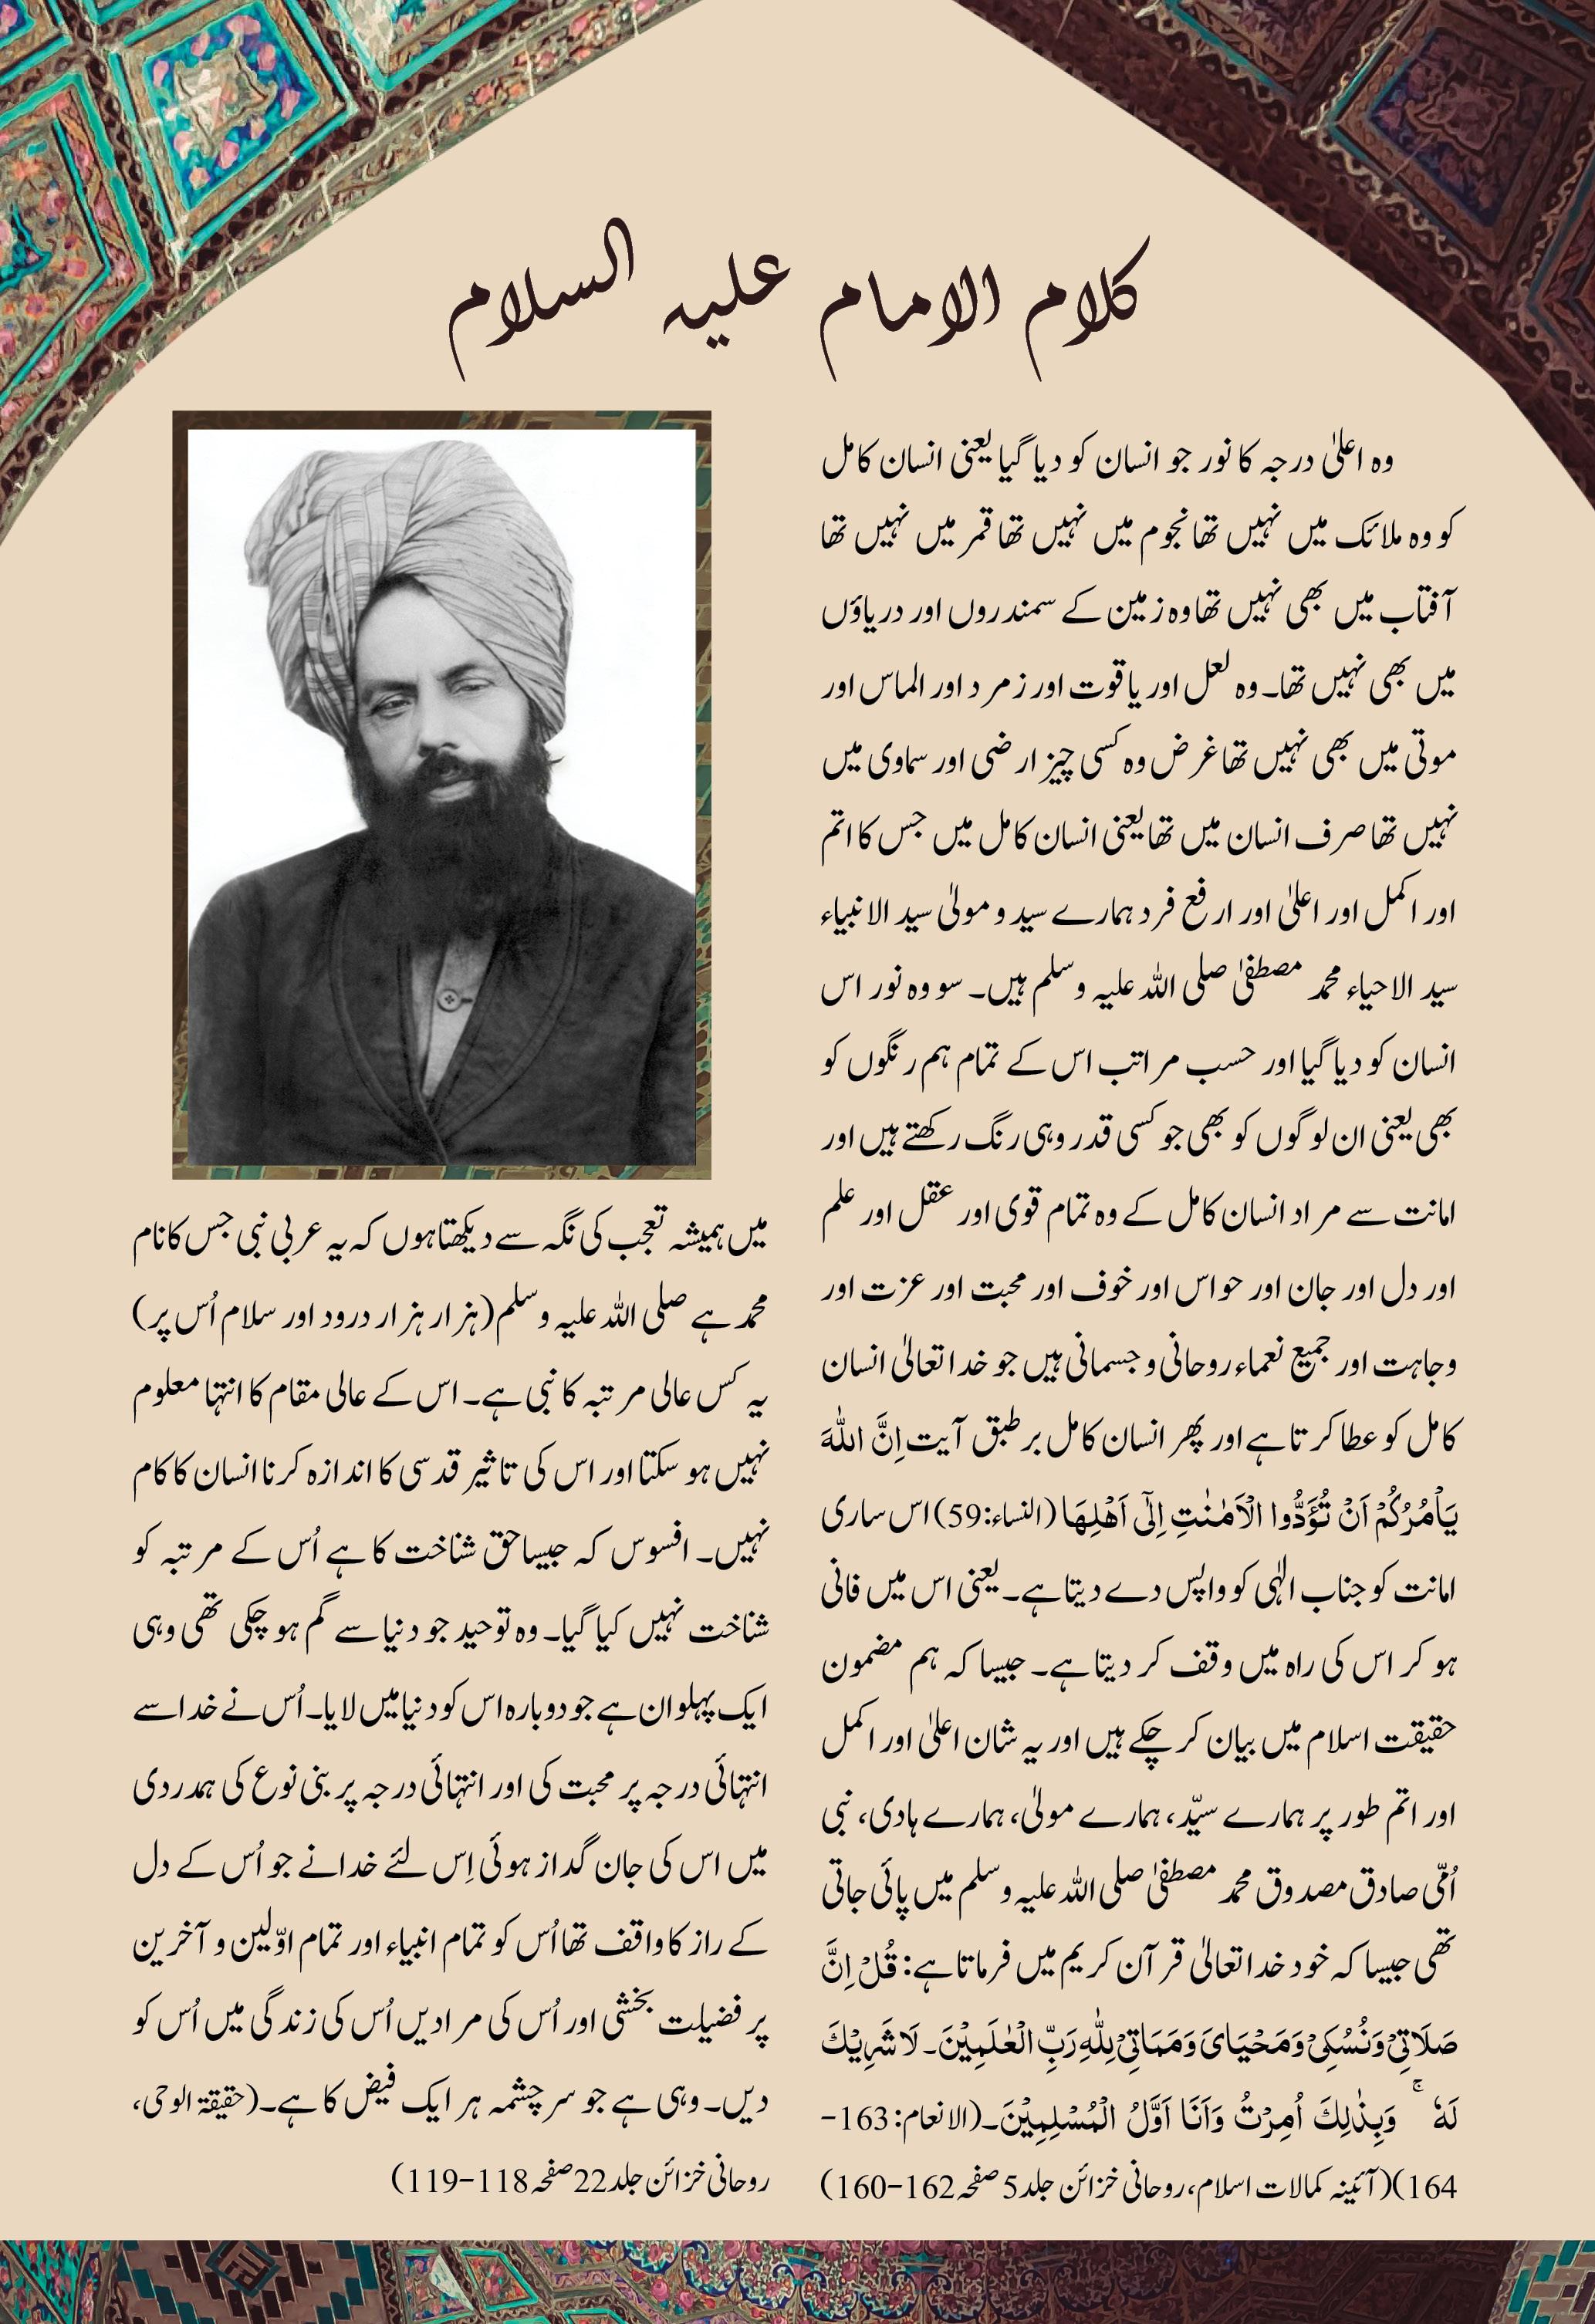 کلام الامام علیہ السلام
وہ اعلیٰ درجہ کا نور جو انسان کو دیا گیا یعنی انسان کامل
کو وہ ملائک میں نہیں تھا نجوم میں نہیں تھا قمر میں نہیں تھا
آفتاب میں بھی نہیں تھا وہ زمین کے سمندروں اور دریاؤں
میں بھی نہیں تھا۔ وہ لعل اور یاقوت اور زمرد اور الماس اور
موتی میں بھی نہیں تھا غرض وہ کسی چیز ارضی اور سماوی میں
نہیں تھا صرف انسان میں تھا یعنی انسان کامل میں جس کا اتم
اور اکمل اور اعلیٰ اور ارفع فرد ہمارے سید و مولیٰ سید الانبیاء
سید الاحیاء محمد مصطفیٰ صلی اللہ علیہ وسلم ہیں۔ سو وہ نور اس
انسان کو دیا گیا اور حسب مراتب اس کے تمام ہم رنگوں کو
بھی یعنی ان لوگوں کو بھی جو کسی قدر وہی رنگ رکھتے ہیں اور
امانت سے مراد انسان کامل کے وہ تمام قویٰ اور عقل اور علم
اور دل اور جان اور حواس اور خوف اور محبت اور عزت اور
وجاہت اور جمیع نعماء روحانی و جسمانی ہیں جو خدا تعالیٰ انسان
کامل کو عطا کرتا ہے اور پھر انسان کامل برطبق آیت اِنَّ اللّٰہَ
یَاْمُرُکُمْ اَنْ تُؤَدُّوا الْاَمٰنٰتِ اِلٰٓی اَھْلِھَا (النساء:59) اس ساری
امانت کو جناب الٰہی کو واپس دے دیتا ہے۔ یعنی اس میں فانی
ہو کر اس کی راہ میں وقف کر دیتا ہے۔ جیسا کہ ہم مضمون
حقیقت اسلام میں بیان کر چکے ہیں اور یہ شان اعلیٰ اور اکمل
اور اتم طور پر ہمارے سیّد، ہمارے مولیٰ، ہمارے ہادی، نبی
اُمّی صادق مصدوق محمد مصطفیٰ صلی اللہ علیہ وسلم میں پائی جاتی
تھی جیسا کہ خود خدا تعالیٰ قرآن کریم میں فرماتا ہے: قُلْ اِنَّ
صَلَاتِیْ وَنُسُکِیْ وَمَحْیَایَ وَمَمَاتِیْ لِلّٰہِ رَبِّ الْعٰلَمِیْنَ۔ لَا شَرِیْکَ
لَہٗ ۚ وَبِذٰلِکَ اُمِرْتُ وَاَنَا اَوَّلُ الْمُسْلِمِیْنَ۔(الانعام:163-
164)(آئینہ کمالات اسلام، روحانی خزائن جلد5 صفحہ 160-162)
میں ہمیشہ تعجب کی نگہ سے دیکھتا ہوں کہ یہ عربی نبی جس کا نام
محمد ہے صلی اللہ علیہ وسلم (ہزار ہزار درود اور سلام اُس پر)
یہ کس عالی مرتبہ کا نبی ہے۔ اس کے عالی مقام کا انتہا معلوم
نہیں ہو سکتا اور اس کی تاثیر قدسی کا اندازہ کرنا انسان کا کام
نہیں۔ افسوس کہ جیسا حق شناخت کا ہے اُس کے مرتبہ کو
شناخت نہیں کیا گیا۔ وہ توحید جو دنیا سے گم ہو چکی تھی وہی
ایک پہلوان ہے جو دوبارہ اس کو دنیا میں لایا۔ اُس نے خدا سے
انتہائی درجہ پر محبت کی اور انتہائی درجہ پر بنی نوع کی ہمدردی
میں اس کی جان گداز ہوئی اِس لئے خدا نے جو اُس کے دل
کے راز کا واقف تھا اُس کو تمام انبیاء اور تمام اوّلین و آخرین
پر فضیلت بخشی اور اُس کی مرادیں اُس کی زندگی میں اُس کو
دیں۔ وہی ہے جو سرچشمہ ہر ایک فیض کا ہے۔ (حقیقۃ الوحی،
روحانی خزائن جلد22 صفحہ 118-119)